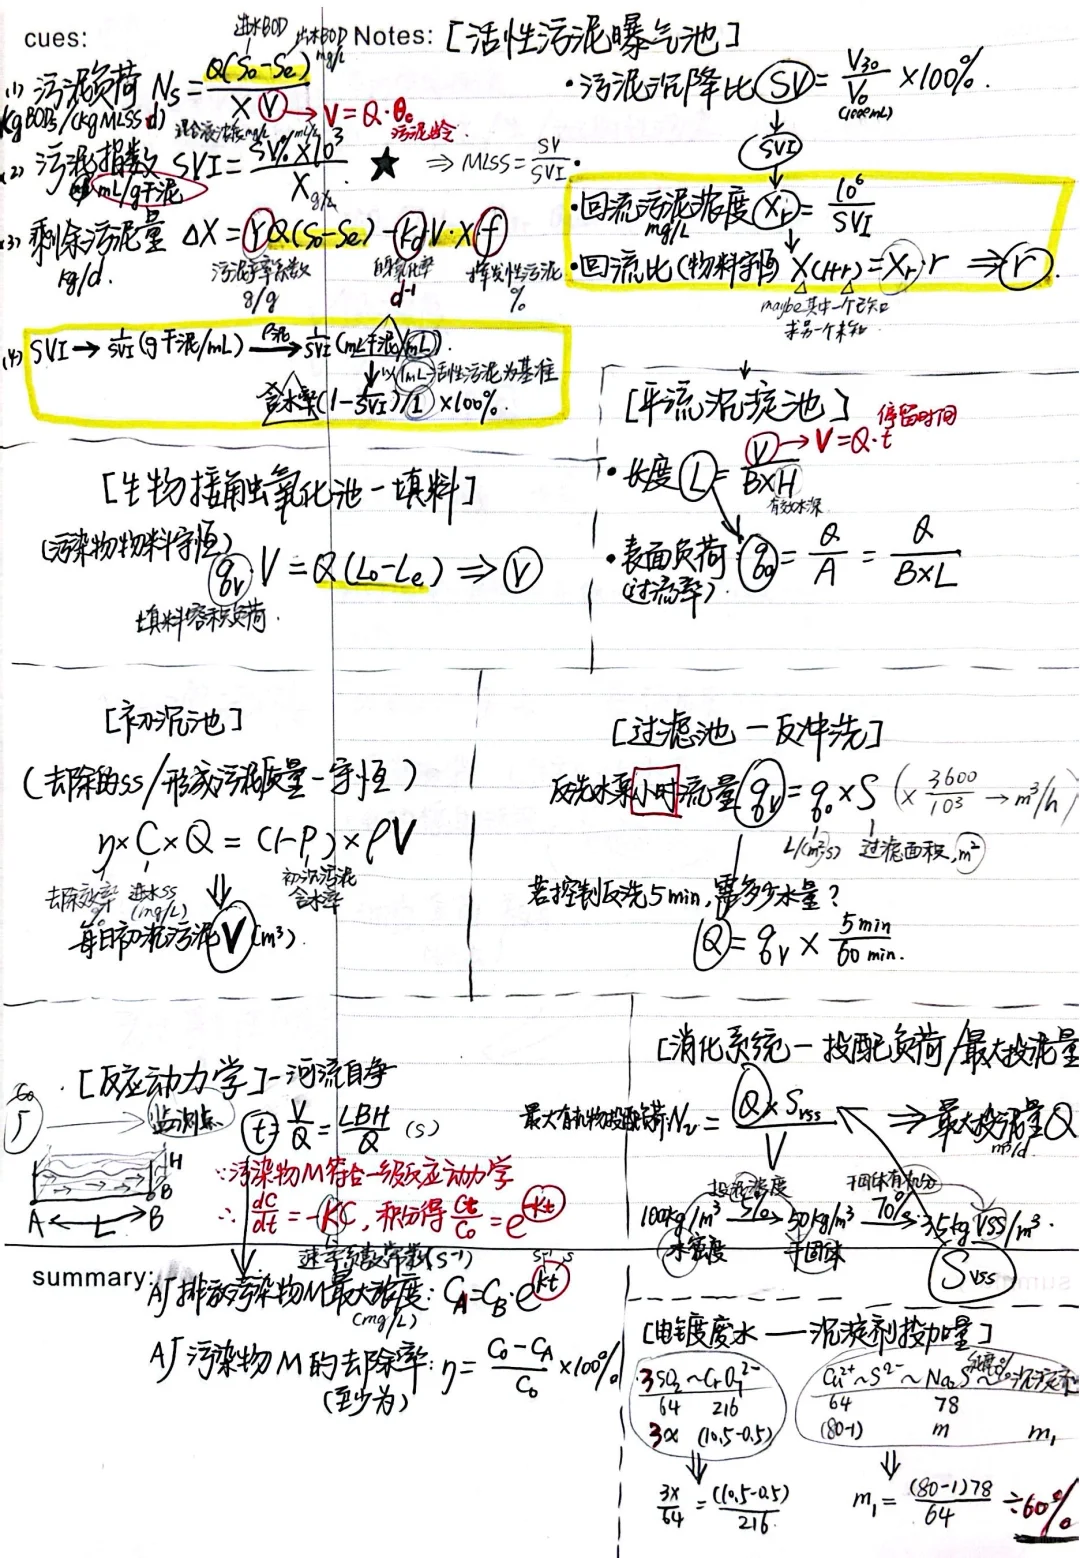 cues:
进水BOD
出水BOD mg/L
Notes: [活性污泥曝气池]
(1) 污泥负荷 Ns = Q(So-Se) / XV
kgBOD5/(kgMLSS·d)
混合液浓度mg/L
→ V = Q·θc
污泥龄
(2) 污泥指数 SVI = SV% × 10³ / X g/L
mL/g干泥
★ ⇒ MLSS = SV/SVI
(3) 剩余污泥量 ΔX = YQ(So-Se) - Kd·V·X f
kg/d
污泥产率系数 g/g
自氧化率 d⁻¹
挥发性污泥 %
(4) SVI → 1/SVI (g干泥/mL) → 1/SVI (mL干泥/mL)
↓以1mL活性污泥为基准
含水率 (1 - 1/SVI)/1 × 100%.
·污泥沉降比 SV = V30/V0 × 100%.
(1000mL)
SVI
·回流污泥浓度 Xr = 10⁶/SVI
mg/L
·回流比 (物料守恒) X(1+r) = Xr·r ⇒ r
maybe其中一个已知
求另一个未知
[平流沉淀池]
停留时间
·长度 L = V / B×H → V=Q·t
有效水深
·表面负荷 q0 = Q/A = Q / B×L
(过流率)
[生物接触氧化池-填料]
(污染物物料守恒)
qv V = Q(Lo-Le) ⇒ V
填料容积负荷
[初沉池]
(去除的SS/形成污泥质量-守恒)
η×C×Q = (1-P)×ρV
去除效率
进水SS (mg/L)
初沉污泥含水率
每日初沉污泥 V (m³)
[过滤池一反冲洗]
反洗水泵小时流量 qv = q0×S (× 3600/10³ → m³/h)
L/(m²s)
过滤面积, m²
若控制反洗5min, 需多少水量?
Q = qv × 5min / 60min.
[反应动力学]-河流自净
Co
监测点
t = V/Q = LBH/Q (s)
H
B
A L B
∵污染物M符合一级反应动力学
∴ dC/dt = -KC, 积分得 Ct/Co = e^-Kt
速率系数常数(s⁻¹)
s⁻¹ s
summary:
A厂排放污染物M最大浓度: CA = CB·e^kt
(mg/L)
A厂污染物M的去除率: η = Co-CA / Co ×100%
(至少为)
[消化系统一投配负荷/最大投泥量
最大有机物投配负荷 Nv = Q×Svss / V ⇒ 最大投泥量Q
m³/d
投泥浓度
干固体有机分
1000kg/m³ 5% → 50kg/m³ 70% → 35kg VSS/m³.
水密度
干固体
Svss
[电镀废水 — 沉淀剂投加量]
3SO2 ~ Cr2O7²⁻
64 216
3x (10.5-0.5)
3x/64 = (10.5-0.5)/216
Cu²⁺ ~ S²⁻ ~ Na2S 纯度% ~ 沉淀剂
64 78
(80-1) m m1
m1 = (80-1)78 / 64 ÷60%